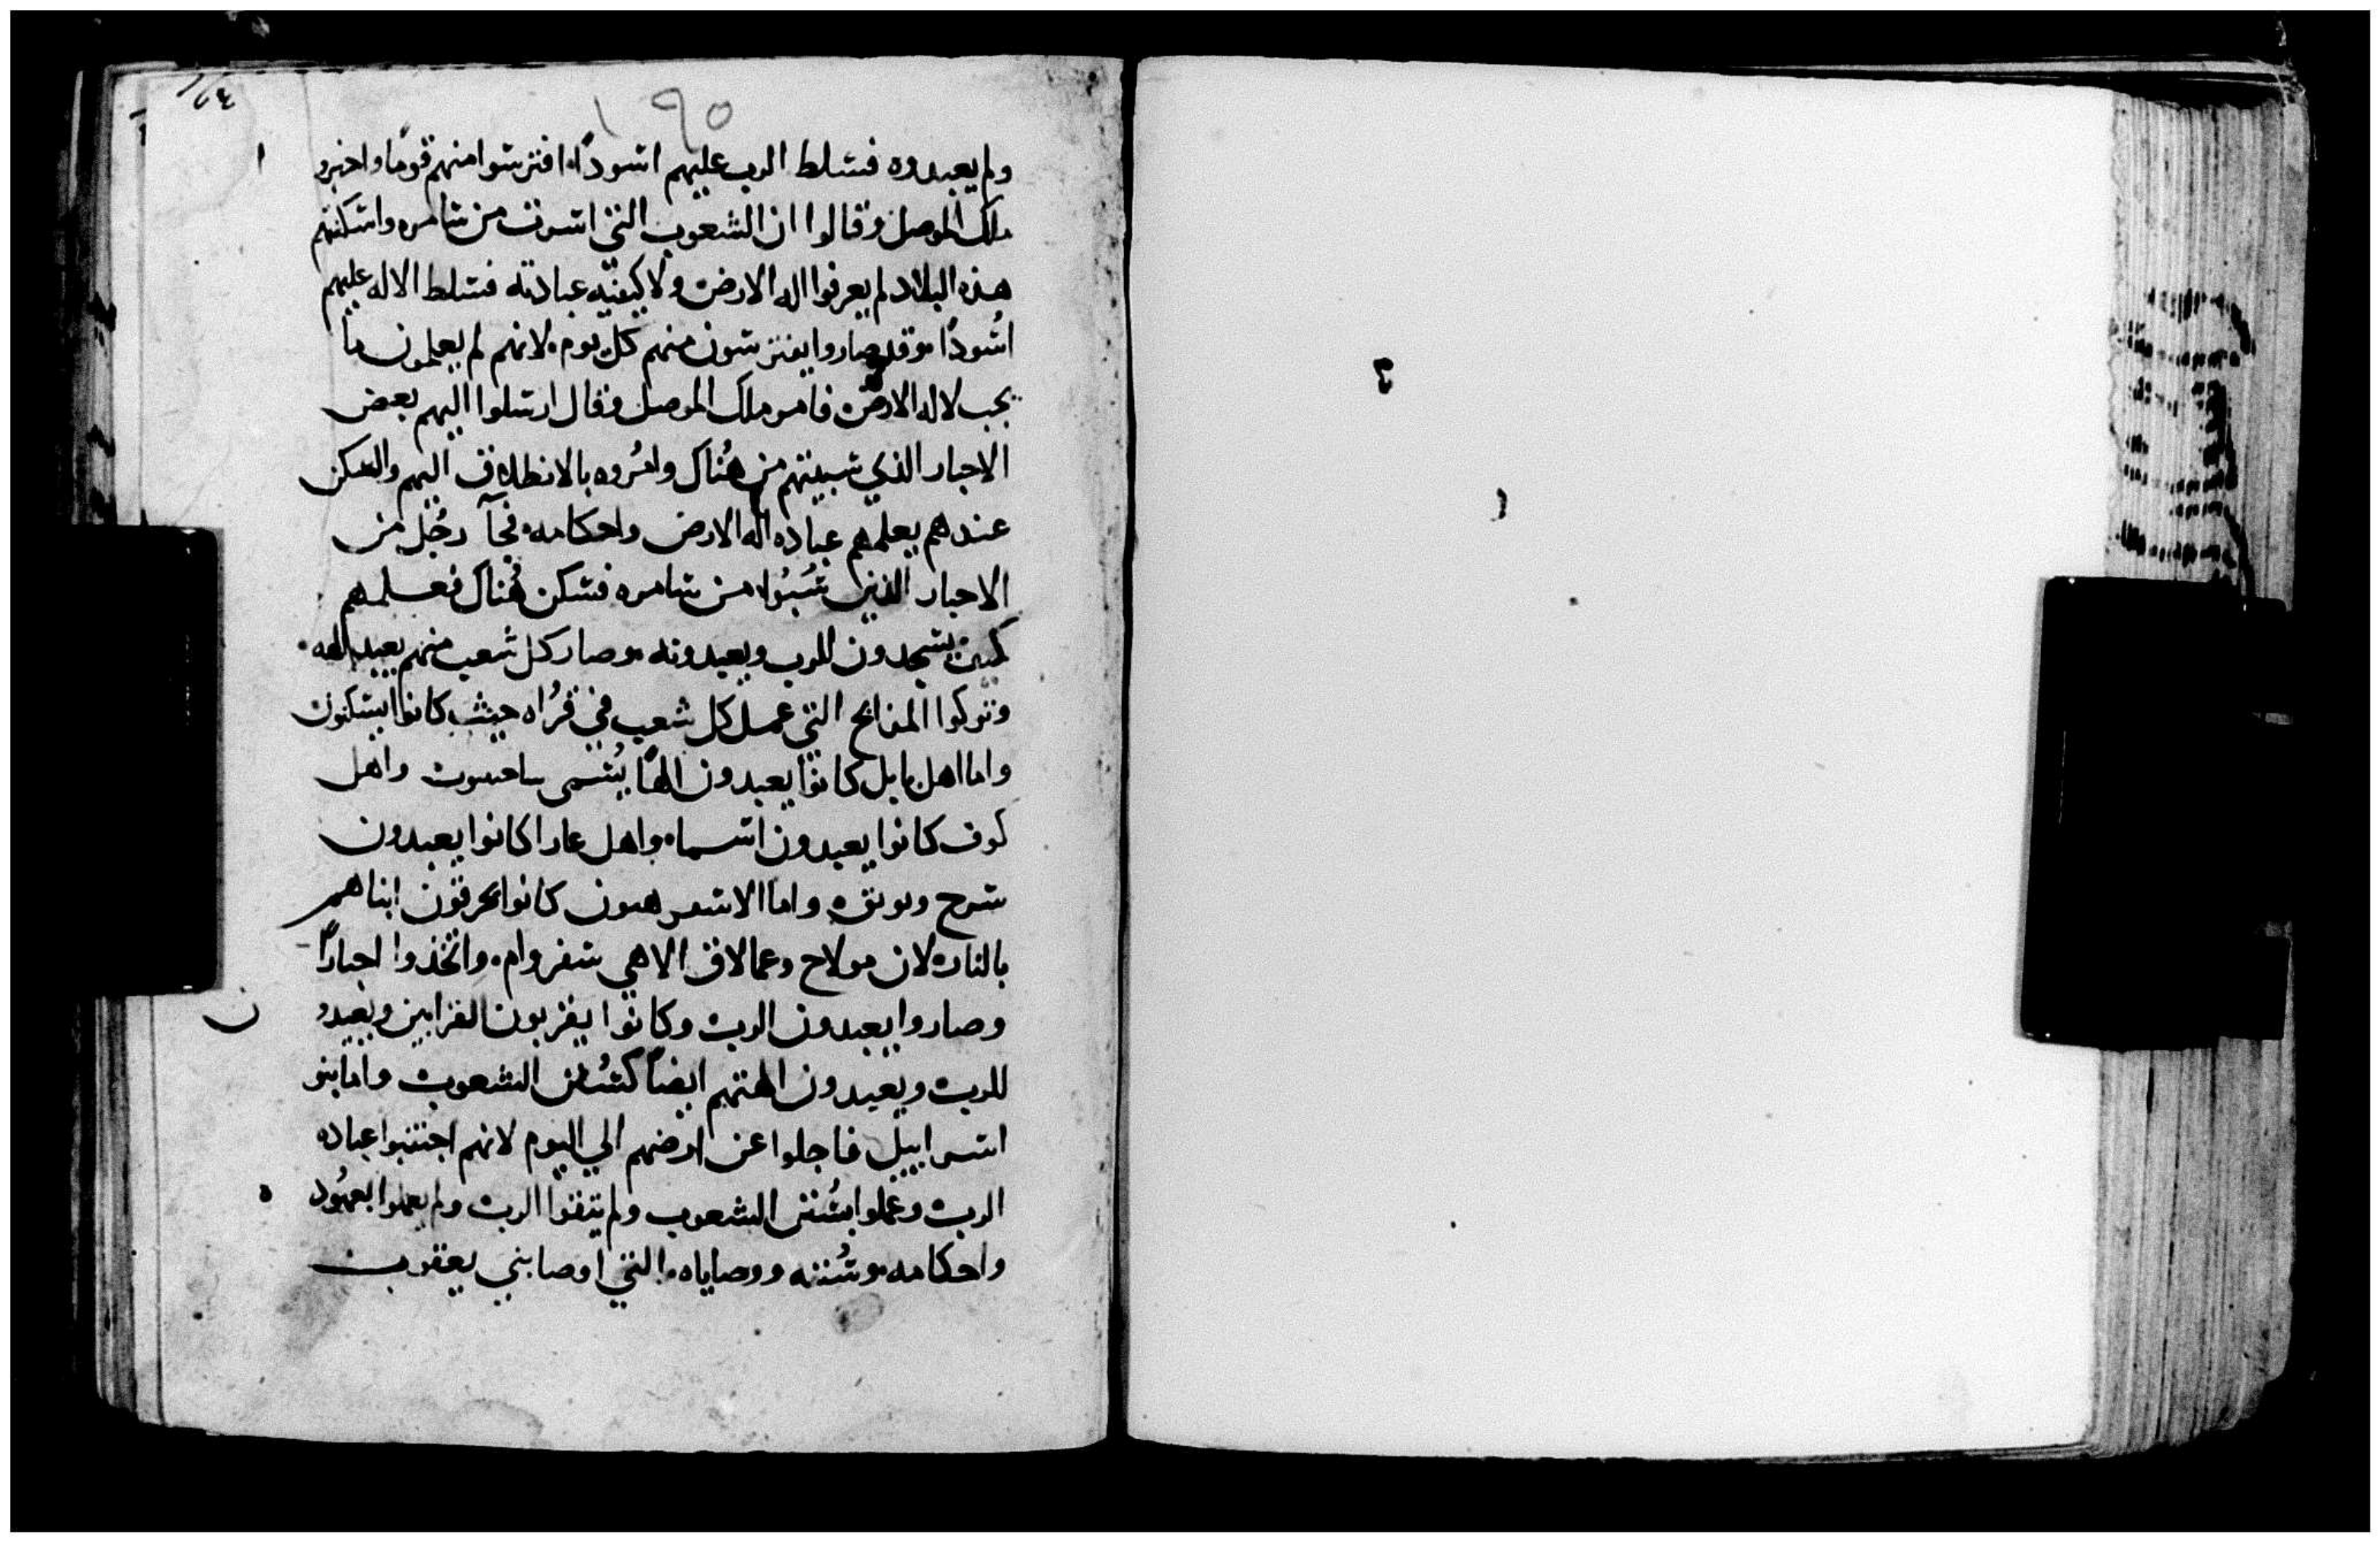 ١٩٥
ولم يعبدوه فسلط الرب عليهم اسودًا افترسوا منهم قومًا واخبرو
ملك الموصل وقالوا ان الشعوب التي اسرت من سامره واسكنتهم
هذه البلاد لم يعرفوا اله الارض ولا كيفيه عبادته فسلط الاله عليهم
اسُودًا وقد صاروا يفترسون منهم كل يوم لانهم لم يعلمون ما
يجب لاله الارض فامر ملك الموصل وقال ارسلوا اليهم بعض
الاحبار الذي سبيتهم من هُناك وامُروه بالانطلاق اليهم والسكن
عندهم يعلمهم عباده اله الارض واحكامه فجآ رجُل من
الاحبار الذين سُبُوا من سامره فسكن هُناك فعلمهم
كيف يسجدون للرب ويعبدونه وصار كل شعب منهم يعبد الهه
وتركوا المدابح التي عمل كل شعب في قُراه حيث كانوا يسكنون
واما اهل بابل كانوا يعبدون الهًا يُسمى واهل
كوف كانوا يعبدون اسما واهل عارا كانوا يعبدون
سرح واما كانوا يحرقون ابناهم
بالنار لان مولاح وعمالاق الاهي سفروام واتخذوا احبارًا
وصاروا يعبدون الرب وكانوا يقربون القرابين ويعبدو
ن
للرب ويعبدون الهتهم ايضًا كسُنن الشعوب واما بنو
اسراييل فاجلوا عن ارضهم الي اليوم لانهم اجتنبوا عباده
الرب وعملوا بسُنن الشعوب ولم يتقوا الرب ولم يعملوا بعهُود
ه
واحكامه وسُننه ووصاياه التي اوصا بني يعقوب